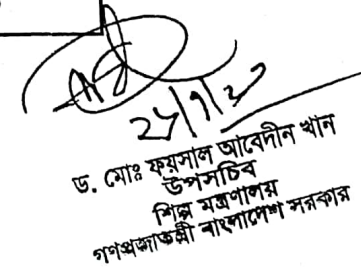 ড. মোঃ ফয়সাল আবেদীন খান
উপসচিব
শিল্প মন্ত্রণালয়
গণপ্রজাতন্ত্রী বাংলাদেশ সরকার